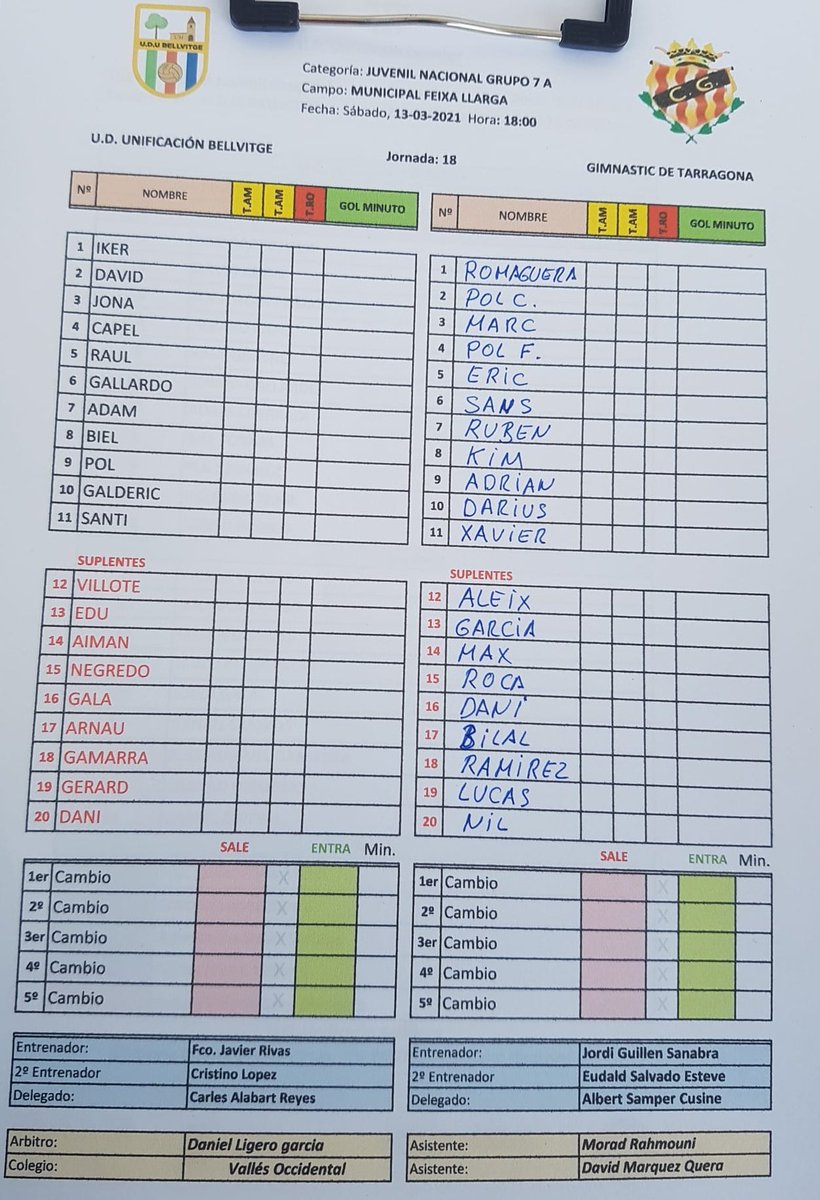 U.D.U BELLVITGE
C. G.
Categoría: JUVENIL NACIONAL GRUPO 7 A
Campo: MUNICIPAL FEIXA LLARGA
Fecha: Sábado, 13-03-2021 Hora: 18:00
U.D. UNIFICACIÓN BELLVITGE
Jornada: 18
GIMNASTIC DE TARRAGONA
Nº NOMBRE T.AM T.AM T.RO GOL MINUTO
1 IKER
2 DAVID
3 JONA
4 CAPEL
5 RAUL
6 GALLARDO
7 ADAM
8 BIEL
9 POL
10 GALDERIC
11 SANTI
SUPLENTES
12 VILLOTE
13 EDU
14 AIMAN
15 NEGREDO
16 GALA
17 ARNAU
18 GAMARRA
19 GERARD
20 DANI
SALE ENTRA Min.
1er Cambio X
2º Cambio X
3er Cambio X
4º Cambio X
5º Cambio X
Entrenador: Fco. Javier Rivas
2º Entrenador Cristino Lopez
Delegado: Carles Alabart Reyes
Arbitro: Daniel Ligero garcia
Colegio: Vallés Occidental
Nº NOMBRE T.AM T.AM T.RO GOL MINUTO
1 ROMAGUERA
2 POL C.
3 MARC
4 POL F.
5 ERIC
6 SANS
7 RUBEN
8 KIM
9 ADRIAN
10 DARIUS
11 XAVIER
SUPLENTES
12 ALEIX
13 GARCIA
14 MAX
15 ROCA
16 DANI
17 BILAL
18 RAMIREZ
19 LUCAS
20 NIL
SALE ENTRA Min.
1er Cambio X
2º Cambio X
3er Cambio X
4º Cambio X
5º Cambio X
Entrenador: Jordi Guillen Sanabra
2º Entrenador Eudald Salvado Esteve
Delegado: Albert Samper Cusine
Asistente: Morad Rahmouni
Asistente: David Marquez Quera